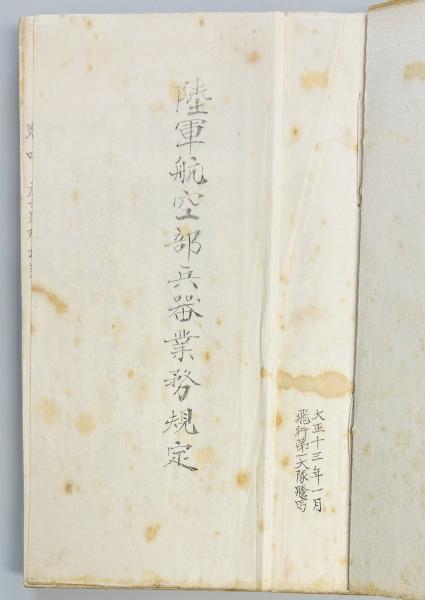 大正十三年一月
飛行第一大隊騰写
陸軍航空部兵器業務規定